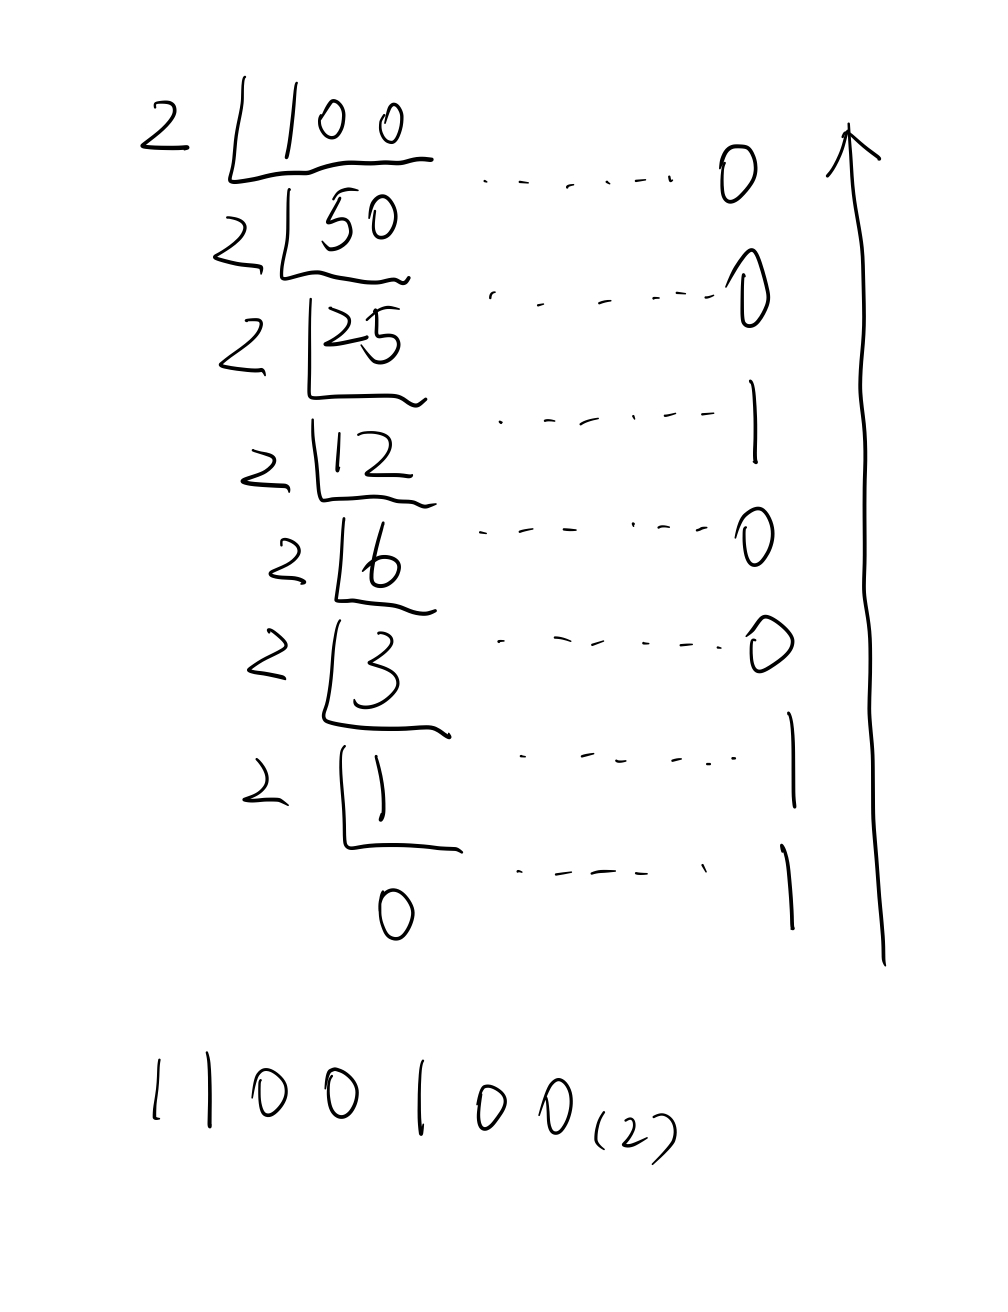 2 100
2 50 0
2 25 0
2 12 1
2 6 0
2 3 0
2 1 1
0 1
1100100(2)